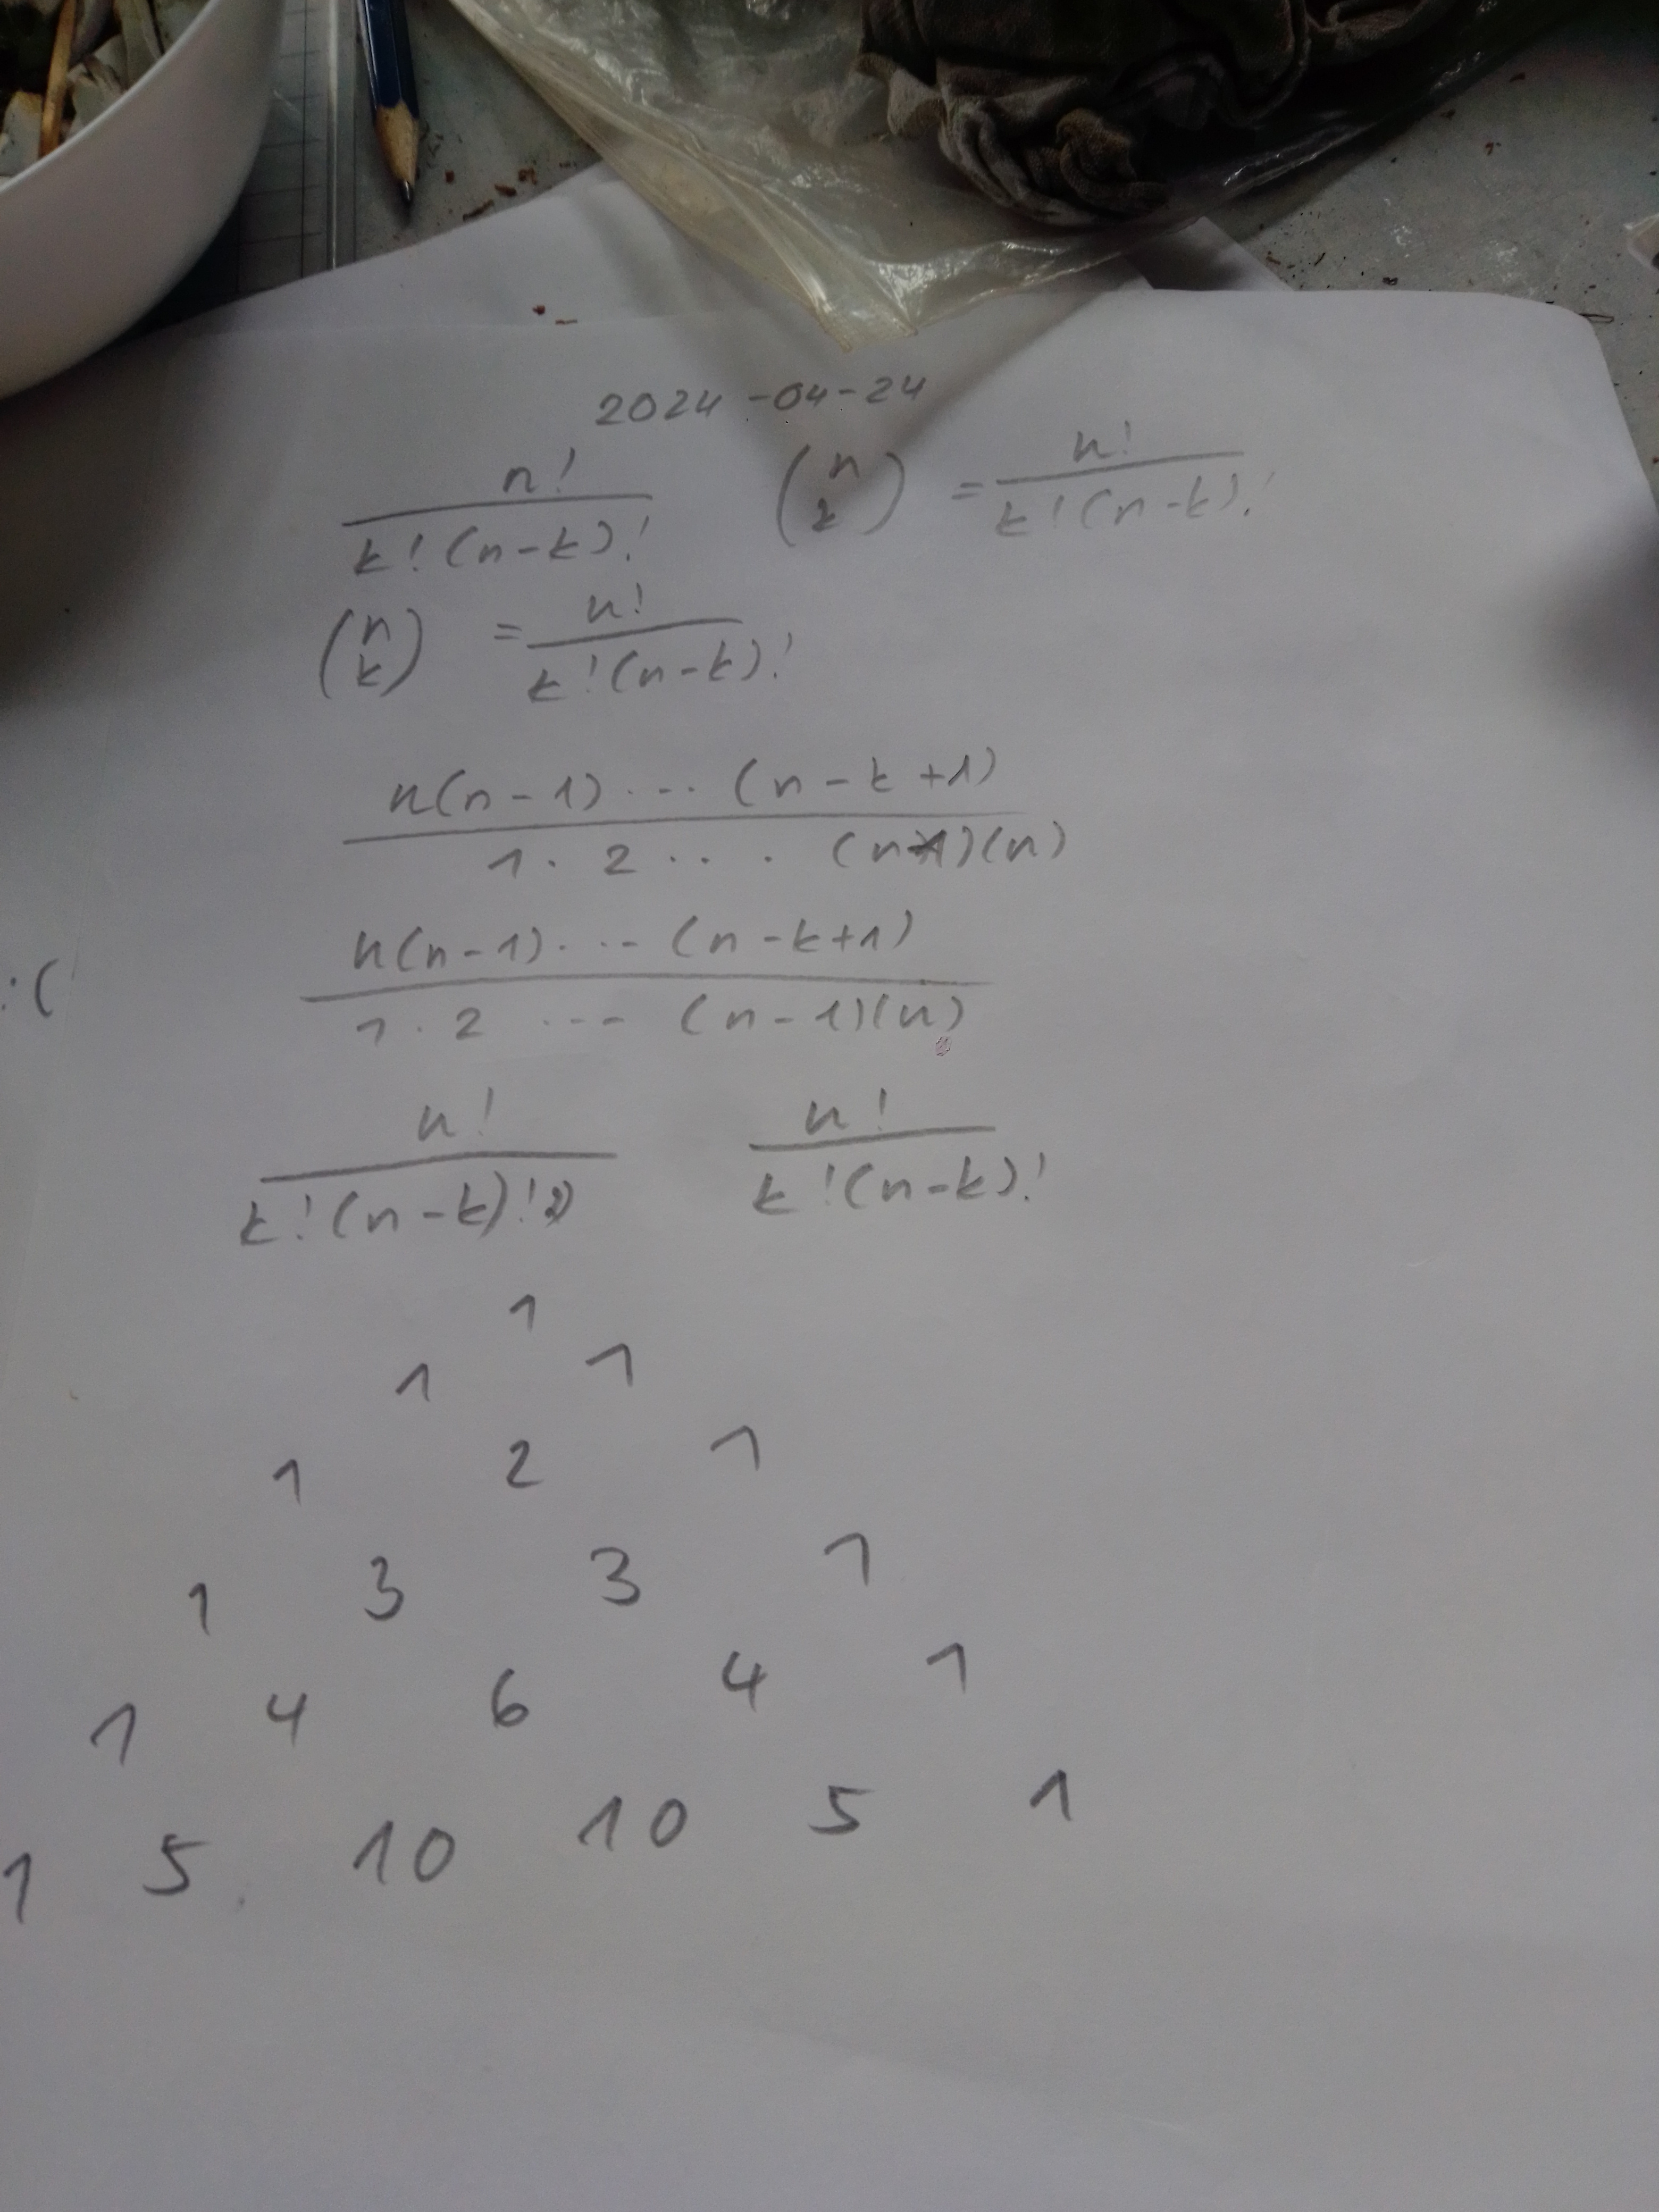 2024-04-24
n! / k!(n-k)!   (n k) = n! / k!(n-k)!
(n k) = n! / k!(n-k)!
n(n-1)··· (n-k+1)
1·2··· (n-1)(n)
n(n-1)··· (n-k+1)
:(
1·2 ··· (n-1)(n)
n!   n!
k!(n-k)!   k!(n-k)!
1
1 1
1 2 1
1 3 3 1
1 4 6 4 1
1 5 10 10 5 1